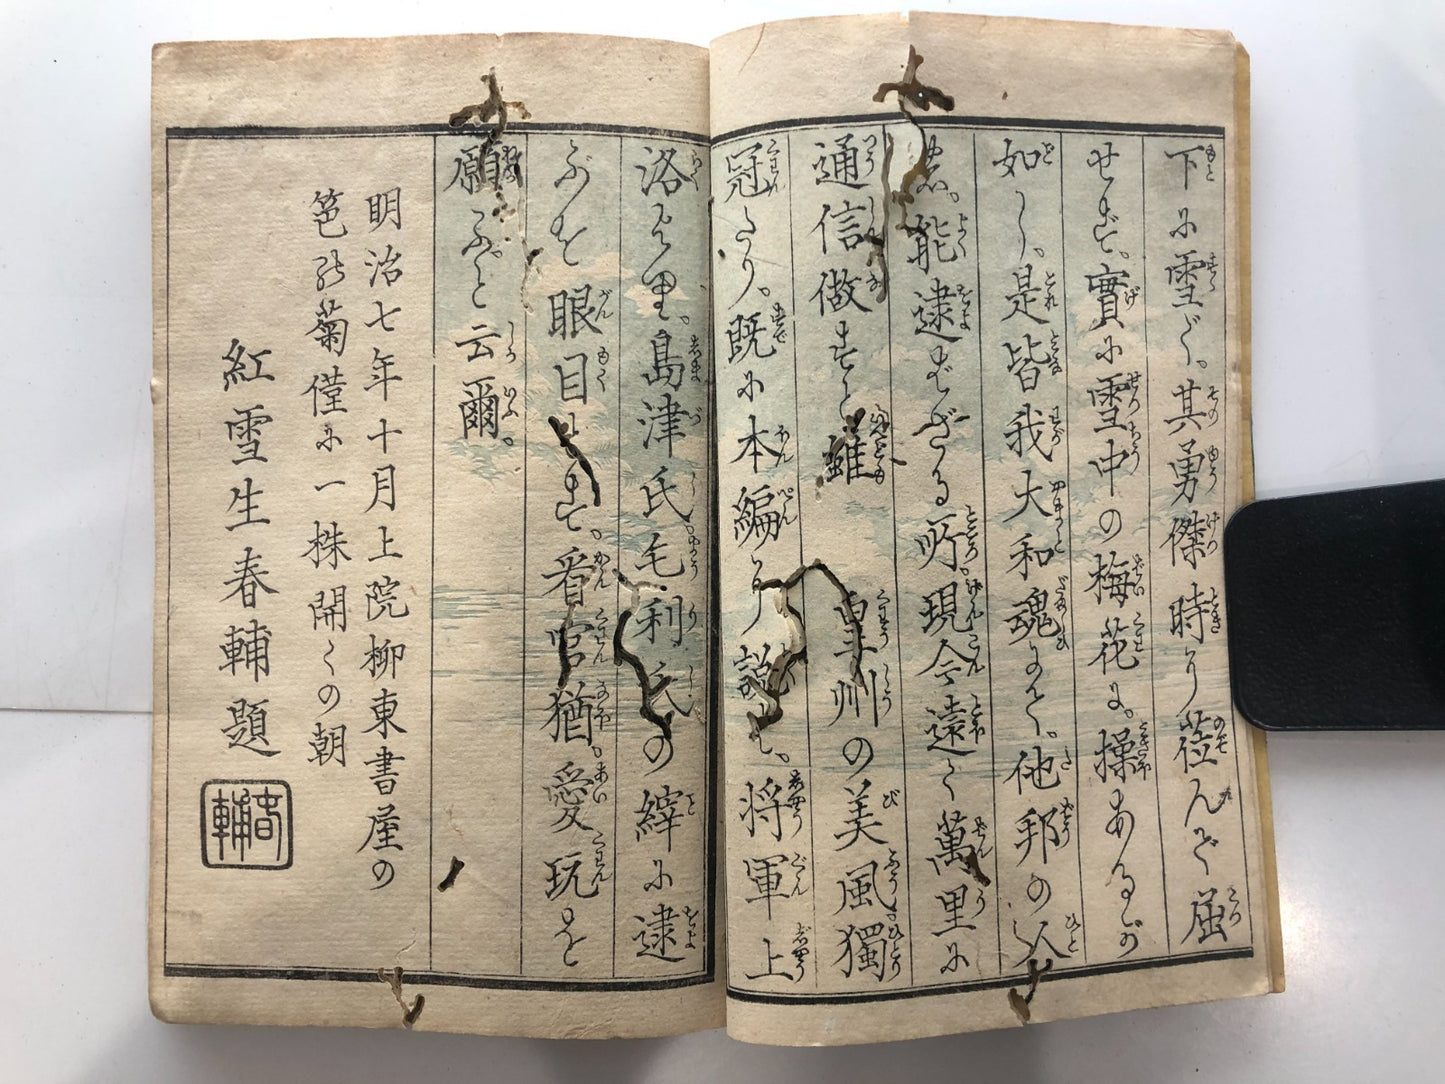 下に雪ぐ。其勇傑時に莅んで屈
せず。實に雪中の梅花に。操あるが
如し。是皆我大和魂にて。他邦の人
能逮ばざる所。現今遠く萬里に
通信做すと雖 皇州の美風。獨
冠たり。既に本編に説 將軍上
洛より。島津氏。毛利氏の繂に逮
ぶを眼目とす。看官猶。愛玩を
願ふと云爾。
明治七年十月上院柳東書屋の
笆の菊僅に一株開くの朝
紅雪生春輔題
春輔